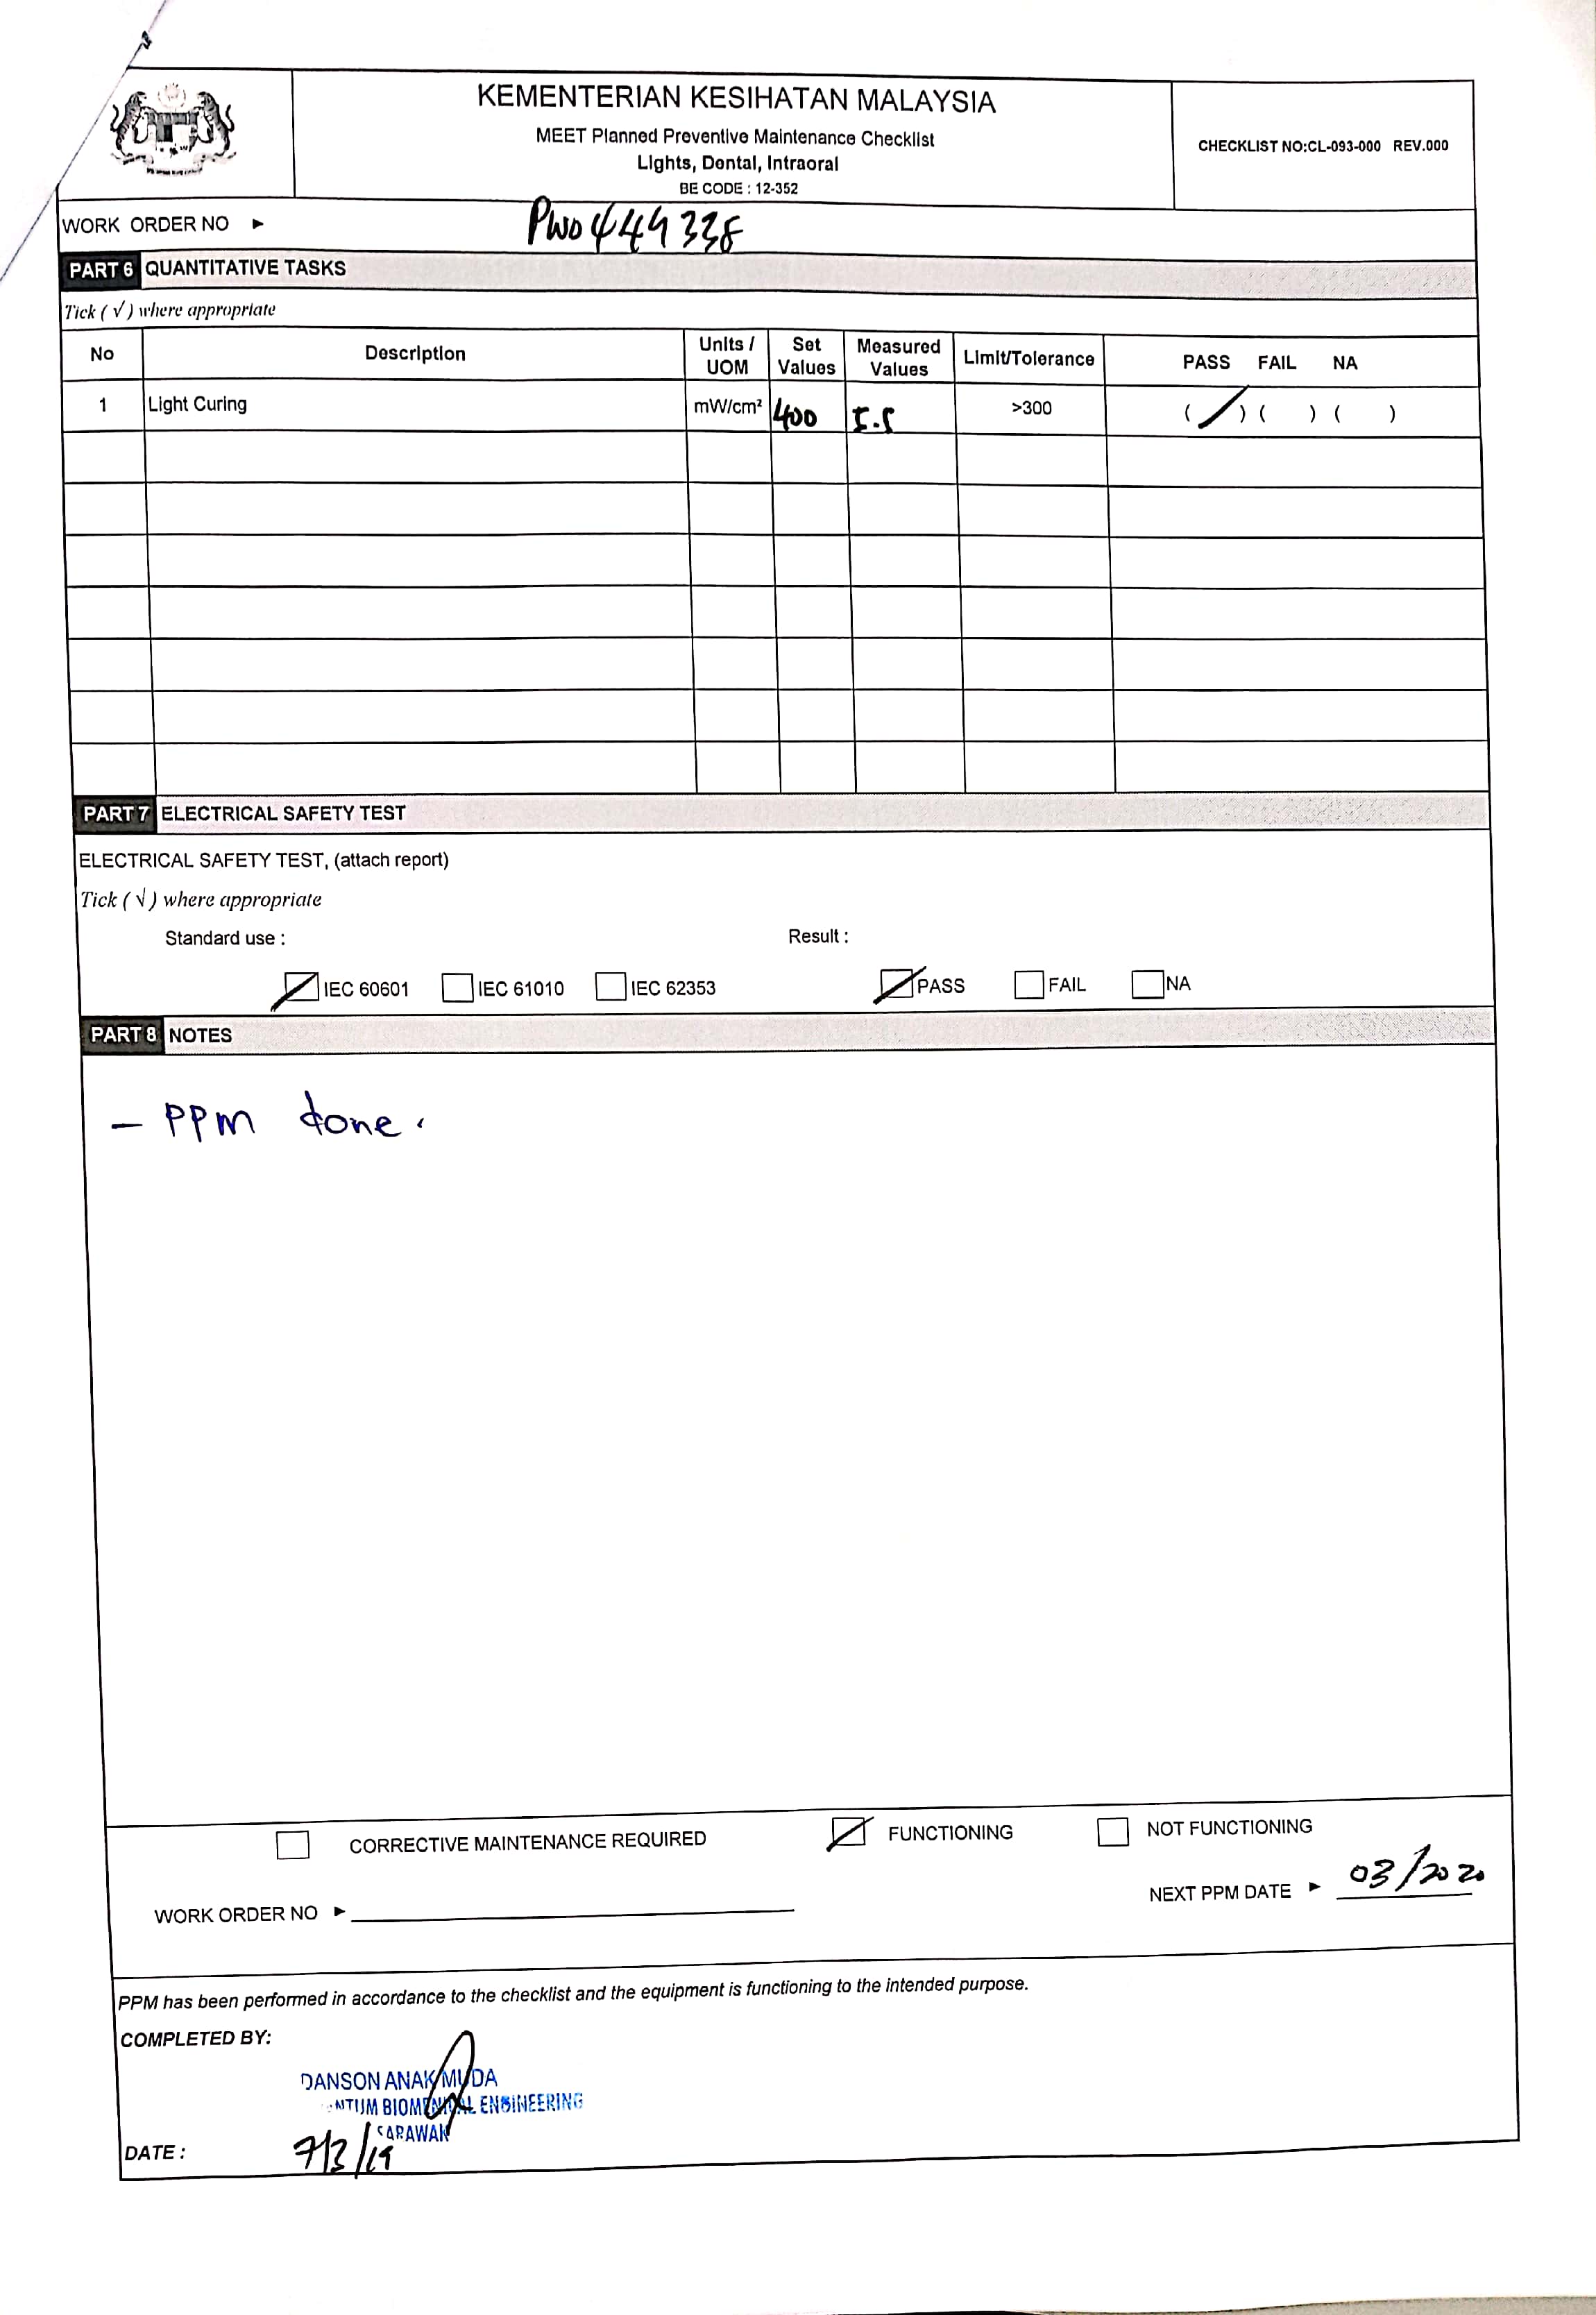 KEMENTERIAN KESIHATAN MALAYSIA
MEET Planned Preventive Maintenance Checklist
Lights, Dental, Intraoral
BE CODE : 12-352
CHECKLIST NO:CL-093-000 REV.000
WORK ORDER NO ► PWO449338
PART 6 QUANTITATIVE TASKS
Tick ( √ ) where appropriate
No Description Units / UOM Set Values Measured Values Limit/Tolerance PASS FAIL NA
1 Light Curing mW/cm² 400 5.5 >300 ( / ) ( ) ( )
PART 7 ELECTRICAL SAFETY TEST
ELECTRICAL SAFETY TEST, (attach report)
Tick ( √ ) where appropriate
Standard use : Result :
IEC 60601 IEC 61010 IEC 62353 PASS FAIL NA
PART 8 NOTES
- PPM done.
CORRECTIVE MAINTENANCE REQUIRED FUNCTIONING NOT FUNCTIONING
WORK ORDER NO ► NEXT PPM DATE ► 03/2020
PPM has been performed in accordance to the checklist and the equipment is functioning to the intended purpose.
COMPLETED BY:
DANSON ANAK MUDA
NTUM BIOMEDICAL ENGINEERING
SARAWAK
DATE : 7/3/19